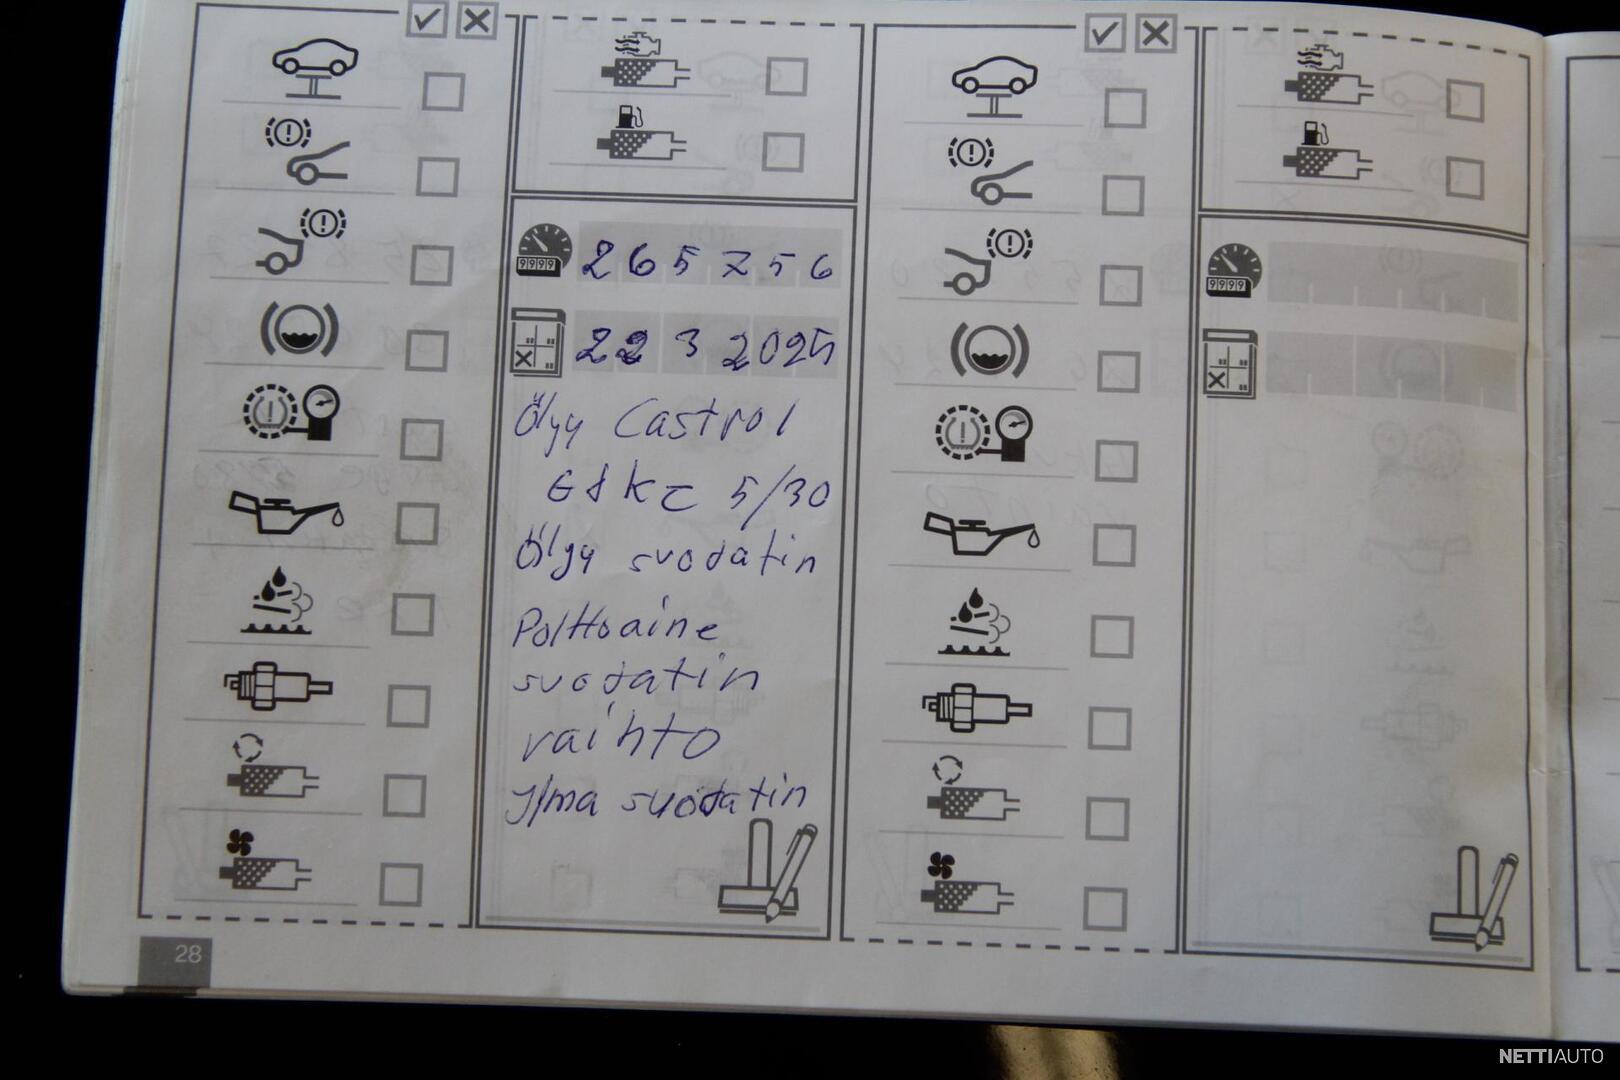 9999
265756
22 3 2025
Ölyy Castrol
5/30
Ölyy suodatin
Polttoaine
suodatin
vaihto
Ilma suodatin
9999
28
NETTIAUTO